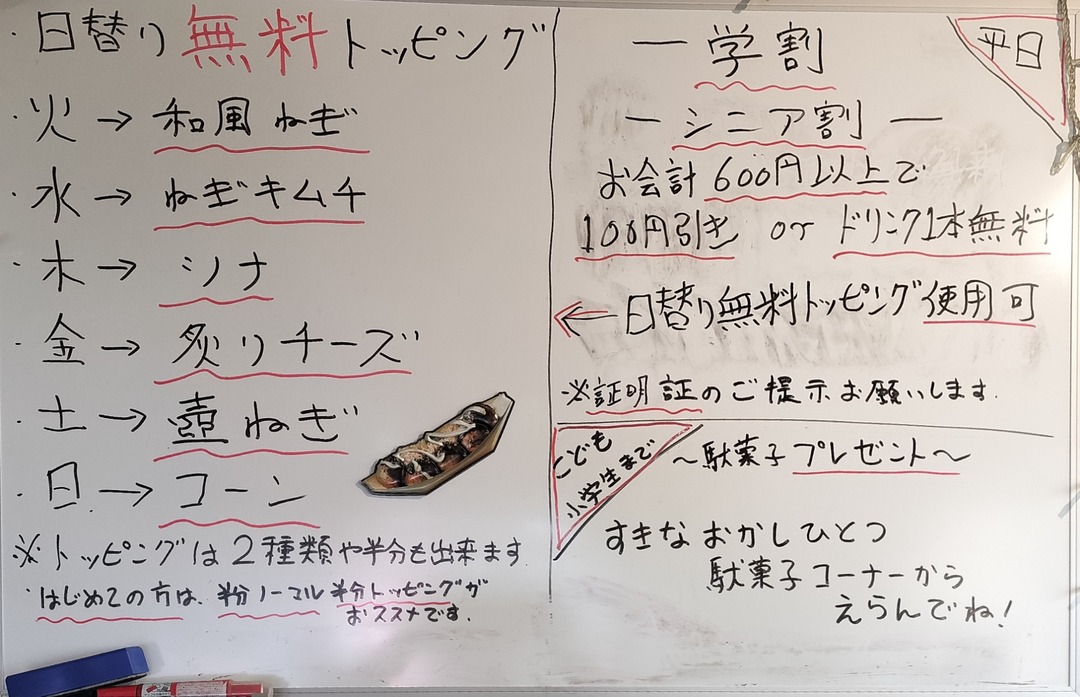 ・日替り無料トッピング
・火→和風ねぎ
・水→ねぎキムチ
・木→シナ
・金→炙りチーズ
・土→壺ねぎ
・日→コーン
※トッピングは2種類や半分も出来ます
・はじめての方は、半分ノーマル半分トッピングが
おススメです。
平日
ー学割
ーシニア割ー
お会計600円以上で
100円引き or ドリンク1本無料
←日替り無料トッピング使用可
※証明証のご提示お願いします.
こども
小学生まで
～駄菓子プレゼント～
すきなおかしひとつ
駄菓子コーナーから
えらんでね!